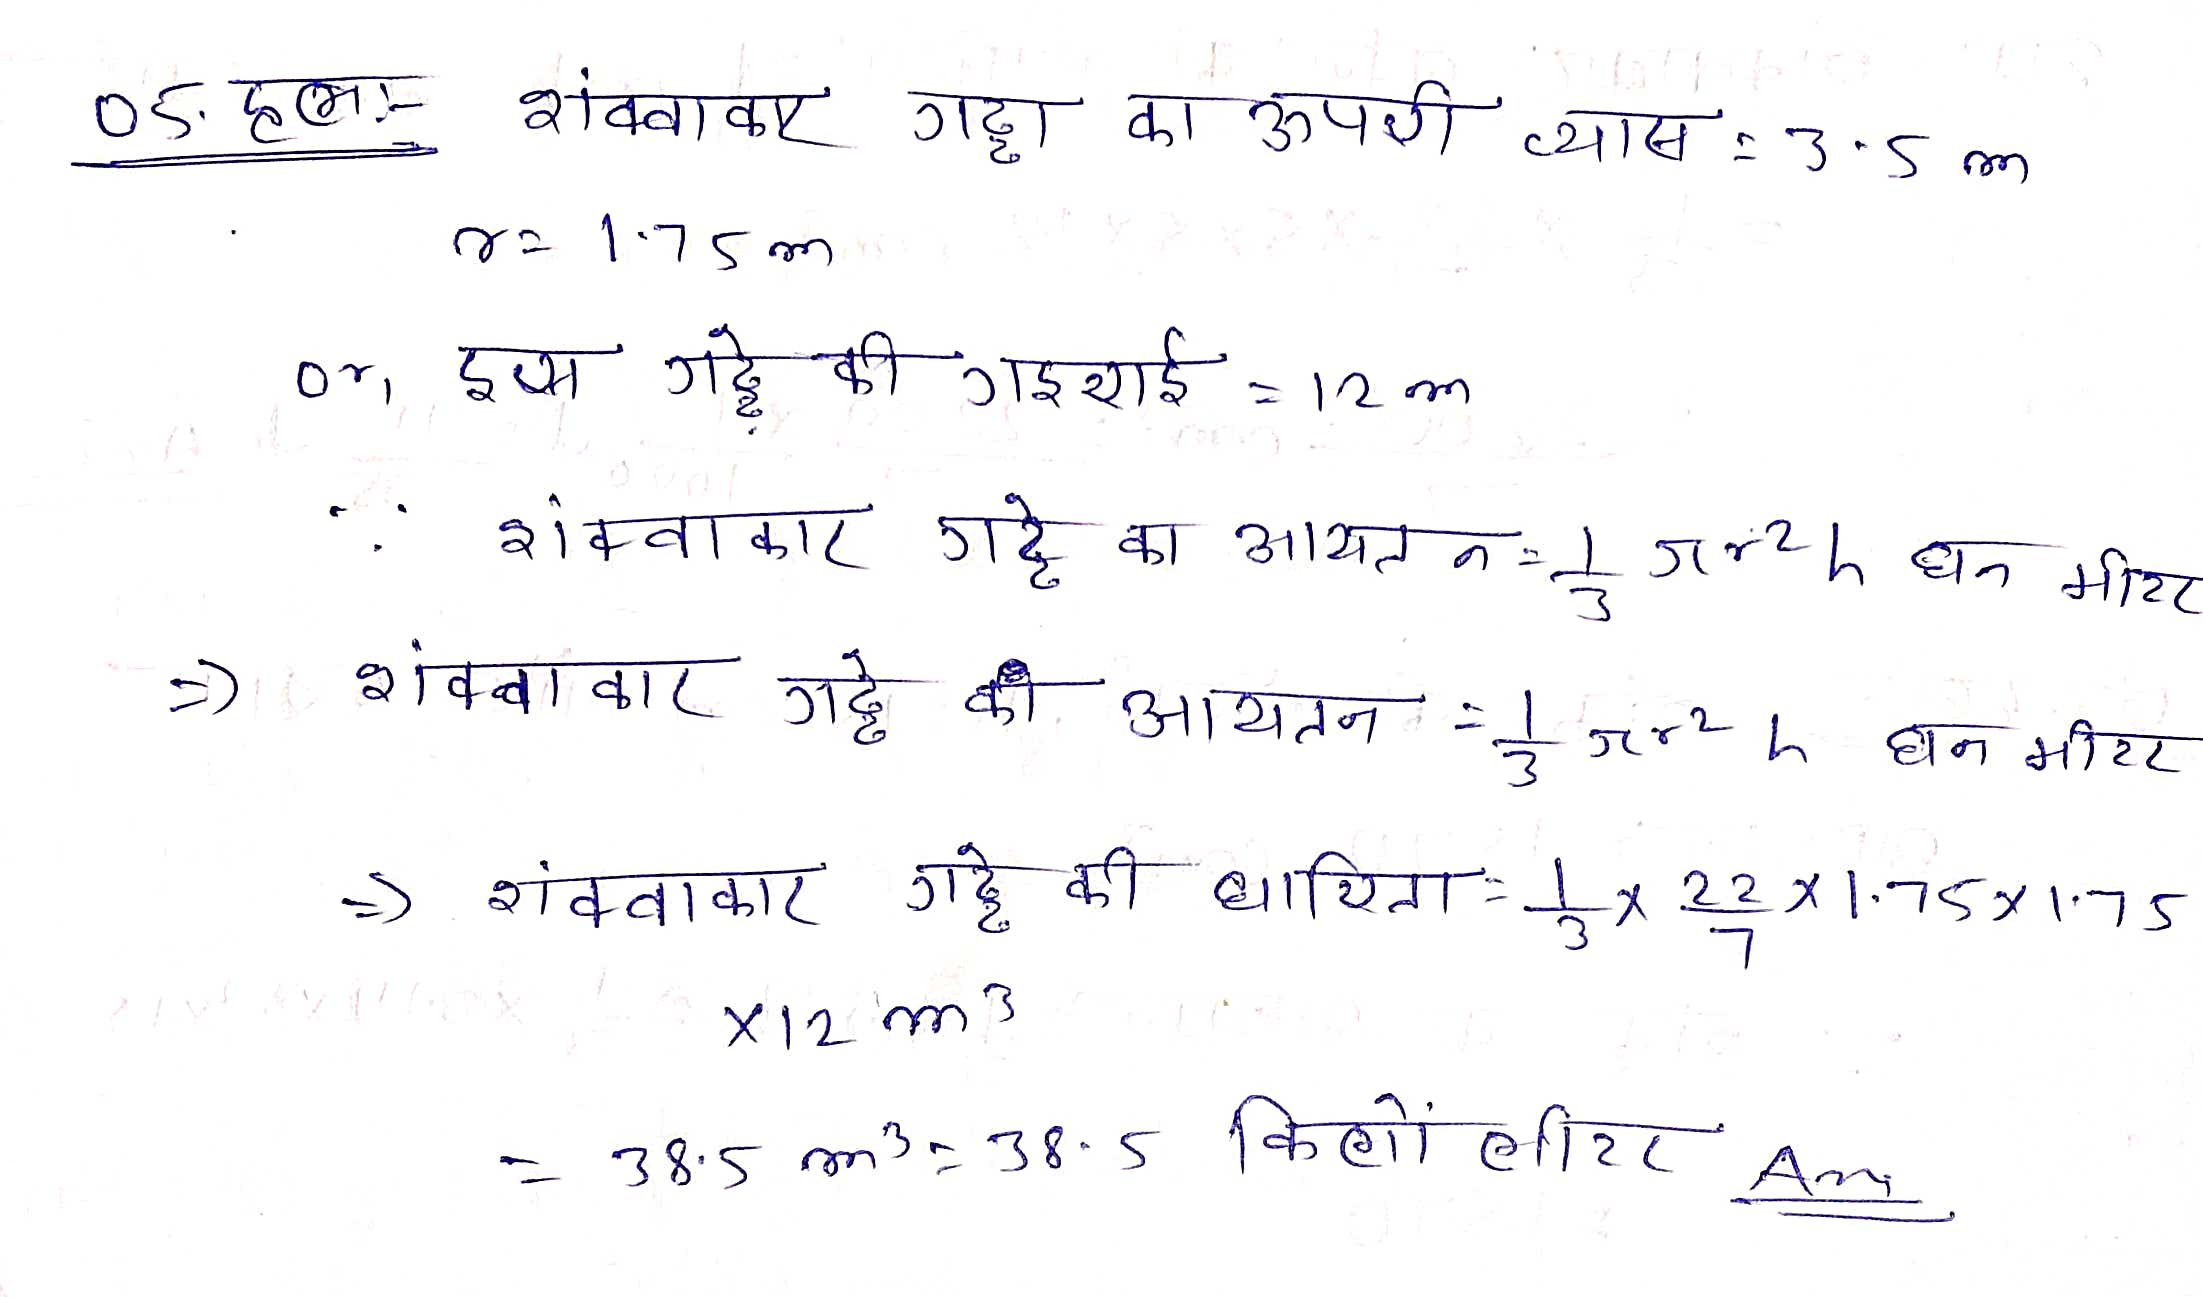 05. हल:- शंक्वाकर गढ्ढा का ऊपरी व्यास = 3.5 m
r = 1.75 m
or, इस गढ्ढे की गहराई = 12 m
∵ शंक्वाकार गढ्ढे का आयतन = 1/3 πr²h घन मीटर
=> शंक्वाकार गढ्ढे की आयतन = 1/3 πr²h घन मीटर
=> शंक्वाकार गढ्ढे की धारिता = 1/3 × 22/7 × 1.75 × 1.75
× 12 m³
= 38.5 m³ = 38.5 किलों लीटर Ans